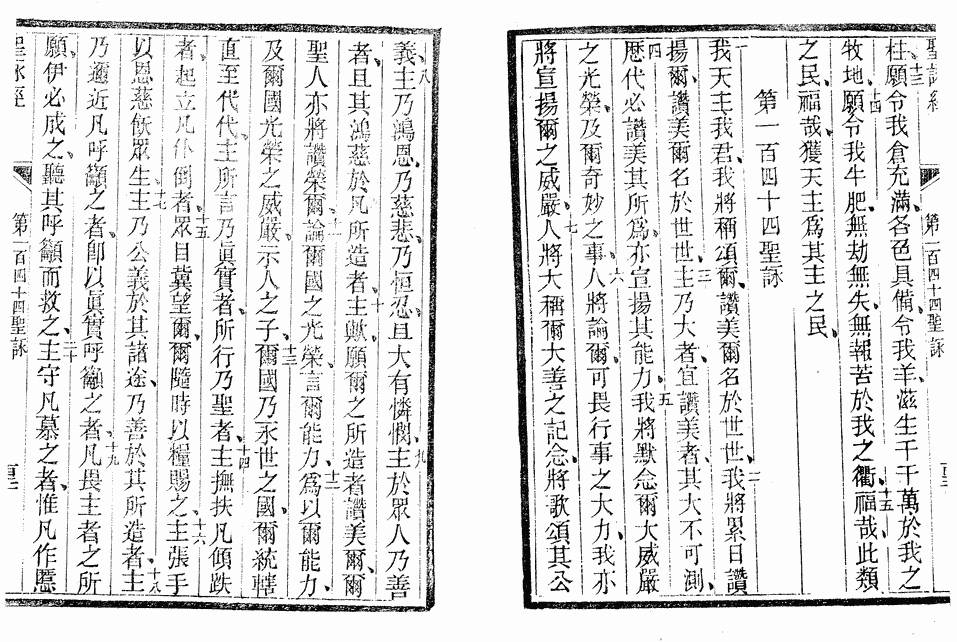 聖詠經 第一百四十四聖詠
柱、十三願令我倉充滿、各色具備、令我羊、滋生千千萬於我之
牧地、十四願令我牛肥、無劫無失、無報苦於我之衢、十五福哉、此類
之民、福哉、獲天主爲其主之民、
第一百四十四聖詠
一我天主我君、我將稱頌爾、讚美爾名於世世、二我將累日讚
揚爾、讚美爾名於世世、三主乃大者、宜讚美者、其大不可測、
四歷代必讚美其所爲、亦宣揚其能力、五我將默念爾大威嚴
之光榮、及爾奇妙之事、六人將論爾、可畏行事之大力、我亦
將宣揚爾之威嚴、七人將大稱爾大善之記念、將歌頌其公
義、八主乃鴻恩、乃慈悲、乃恒忍、且大有憐憫、九主於眾人乃善
者、且其鴻慈於凡所造者、十主歟、願爾之所造者讚美爾、爾
聖人亦將讚榮爾、十一論爾國之光榮、言爾能力、十二爲以爾能力、
及爾國光榮之威嚴、示人之子、十三爾國乃永世之國、爾統轄
直至代代、主所言乃眞實者、所行乃聖者、十四主撫扶凡傾跌
者、起立凡仆倒者、十五眾目冀望爾、爾隨時以糧賜之、十六主張手
以恩慈飫眾生、十七主乃公義於其諸途、乃善於其所造者、十八主
乃邇近凡呼籲之者、卽以眞實呼籲之者、十九凡畏主者之所
願、伊必成之、聽其呼籲而救之、二十主守凡慕之者、惟凡作慝
聖詠經 第一百四十四聖詠